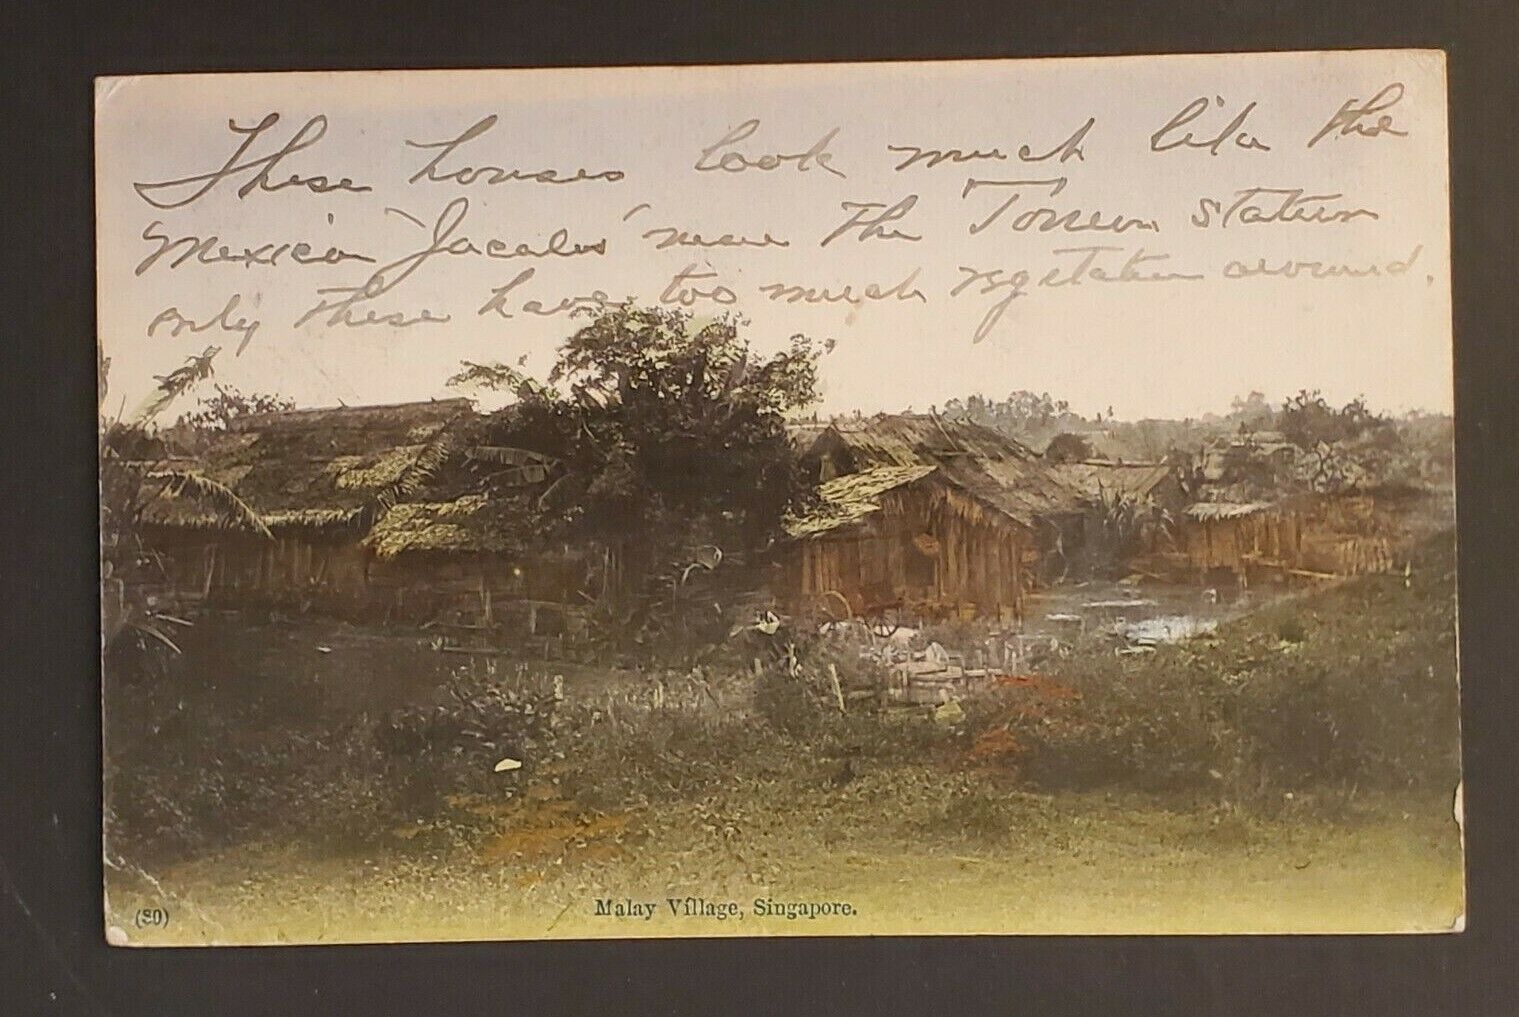 These houses look much like the
Mexican "Jacales" near the Torreon Station
only these have too much vegetation around.
(80)
Malay Village, Singapore.